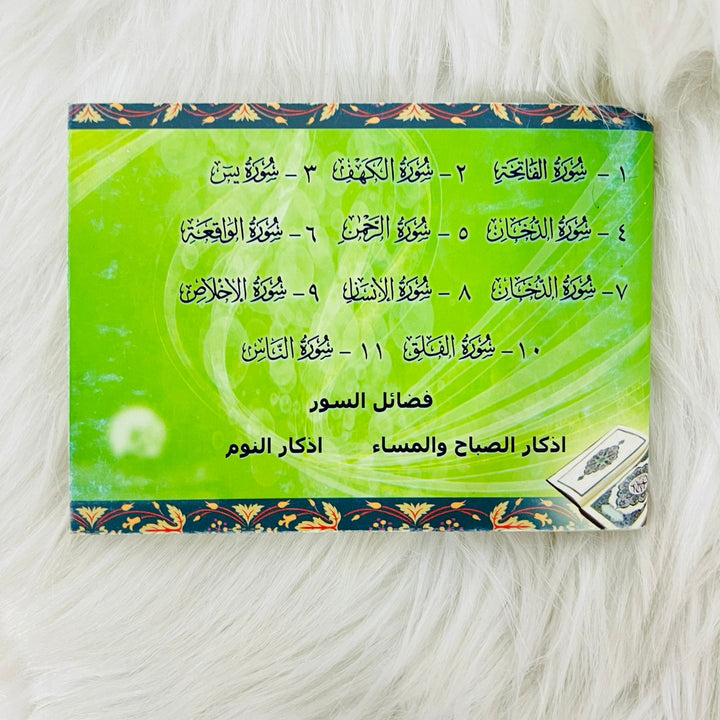 ١ - سُوْرَةُ الفَاتِحَةِ ٢ - سُوْرَةُ الكَهْفِ ٣ - سُوْرَة يسٓ
٤ - سُوْرَةُ الدُّخَانِ ٥ - سُوْرَةُ الرَّحْمٰنِ ٦ - سُوْرَةُ الوَاقِعَةِ
٧- سُوْرَةُ الدُّخَانِ ٨ - سُوْرَةُ الإِنْسَانِ ٩ - سُوْرَةُ الإِخْلَاصِ
١٠- سُوْرَةُ الفَلَقِ ١١ - سُوْرَةُ النَّاسِ
فضائل السور
اذكار الصباح والمساء اذكار النوم